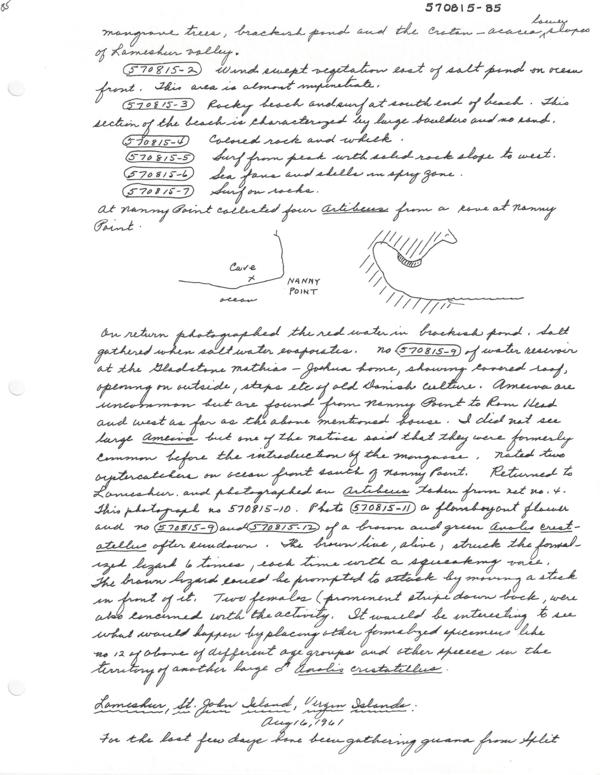 85
570815-85
mangrove trees, brackish pond and the Croton - acacia lower slopes
of Lameshur valley.
570815-2 Wind swept vegetation east of salt pond on ocean
front. This area is almost impenetrable.
570815-3 Rocky beach and surf at south end of beach. This
section of the beach is characterized by large boulders and no sand.
570815-4 Colored rock and whelk.
570815-5 Surf from peak with solid rock slope to west.
570815-6 Sea fans and shells in spray zone.
570815-7 Surf on rocks.
At Nanny Point collected four Artibeus from a cave at Nanny
Point.
Cave
x
NANNY
POINT
ocean
On return photographed the red water in brackish pond. Salt
gathered when salt water evaporates. no 570815-9 of water reservoir
at the Gladstone Mathias - Joshua home, showing covered roof,
opening on outside, steps etc of old Danish culture. Ameiva are
uncommon but are found from Nanny Point to Ram Head
and west as far as the above mentioned house. I did not see
large Ameiva but one of the natives said that they were formerly
common before the introduction of the mongoose. Noted two
oystercatchers on ocean front south of Nanny Point. Returned to
Lameshur and photographed an Artibeus taken from net no. 4.
This photograph no 570815-10. Photo 570815-11 a flamboyant flower
and no 570815-9 and 570815-12 of a brown and green Anolis crist-
atellus after sundown. The brown live, alive, struck the formal-
ized lizard 6 times, each time with a squeaking voice.
The brown lizard could be prompted to attack by moving a stick
in front of it. Two females (prominent stripe down back, were
also concerned with the activity. It would be interesting to see
what would happen by placing other formalyzed specimens like
no 12 of above of different age groups and other species in the
territory of another large ♂ Anolis cristatellus.
Lameshur, St. John Island, Virgin Islands.
Aug 16, 1961
For the last few days have been gathering guana from split